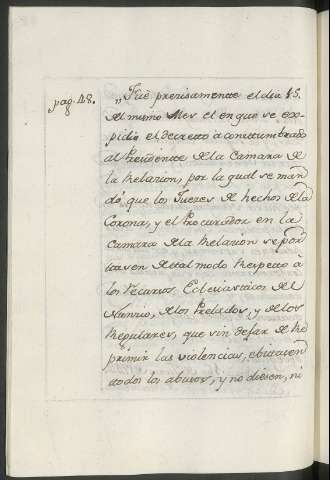 pag. 48.
„Fuè precisamente el dia 15.
del mismo Mes el en que se ex-
pidio el decreto aconstumbrado
al Presidente de la Camara de
la Relacion, por la qual se man-
dó, que los Jueces de hechos de la
Corona, y el Procurador en la
Camara de la Relacion se por
tasen de tal modo respecto à
los Recursos, Eclesiasticos del
Nuncio, de los Prelados, y de los
Regulares, que sin dejar de re
primir las violencias, ebitasen
todos los abusos, y no diesen, ni